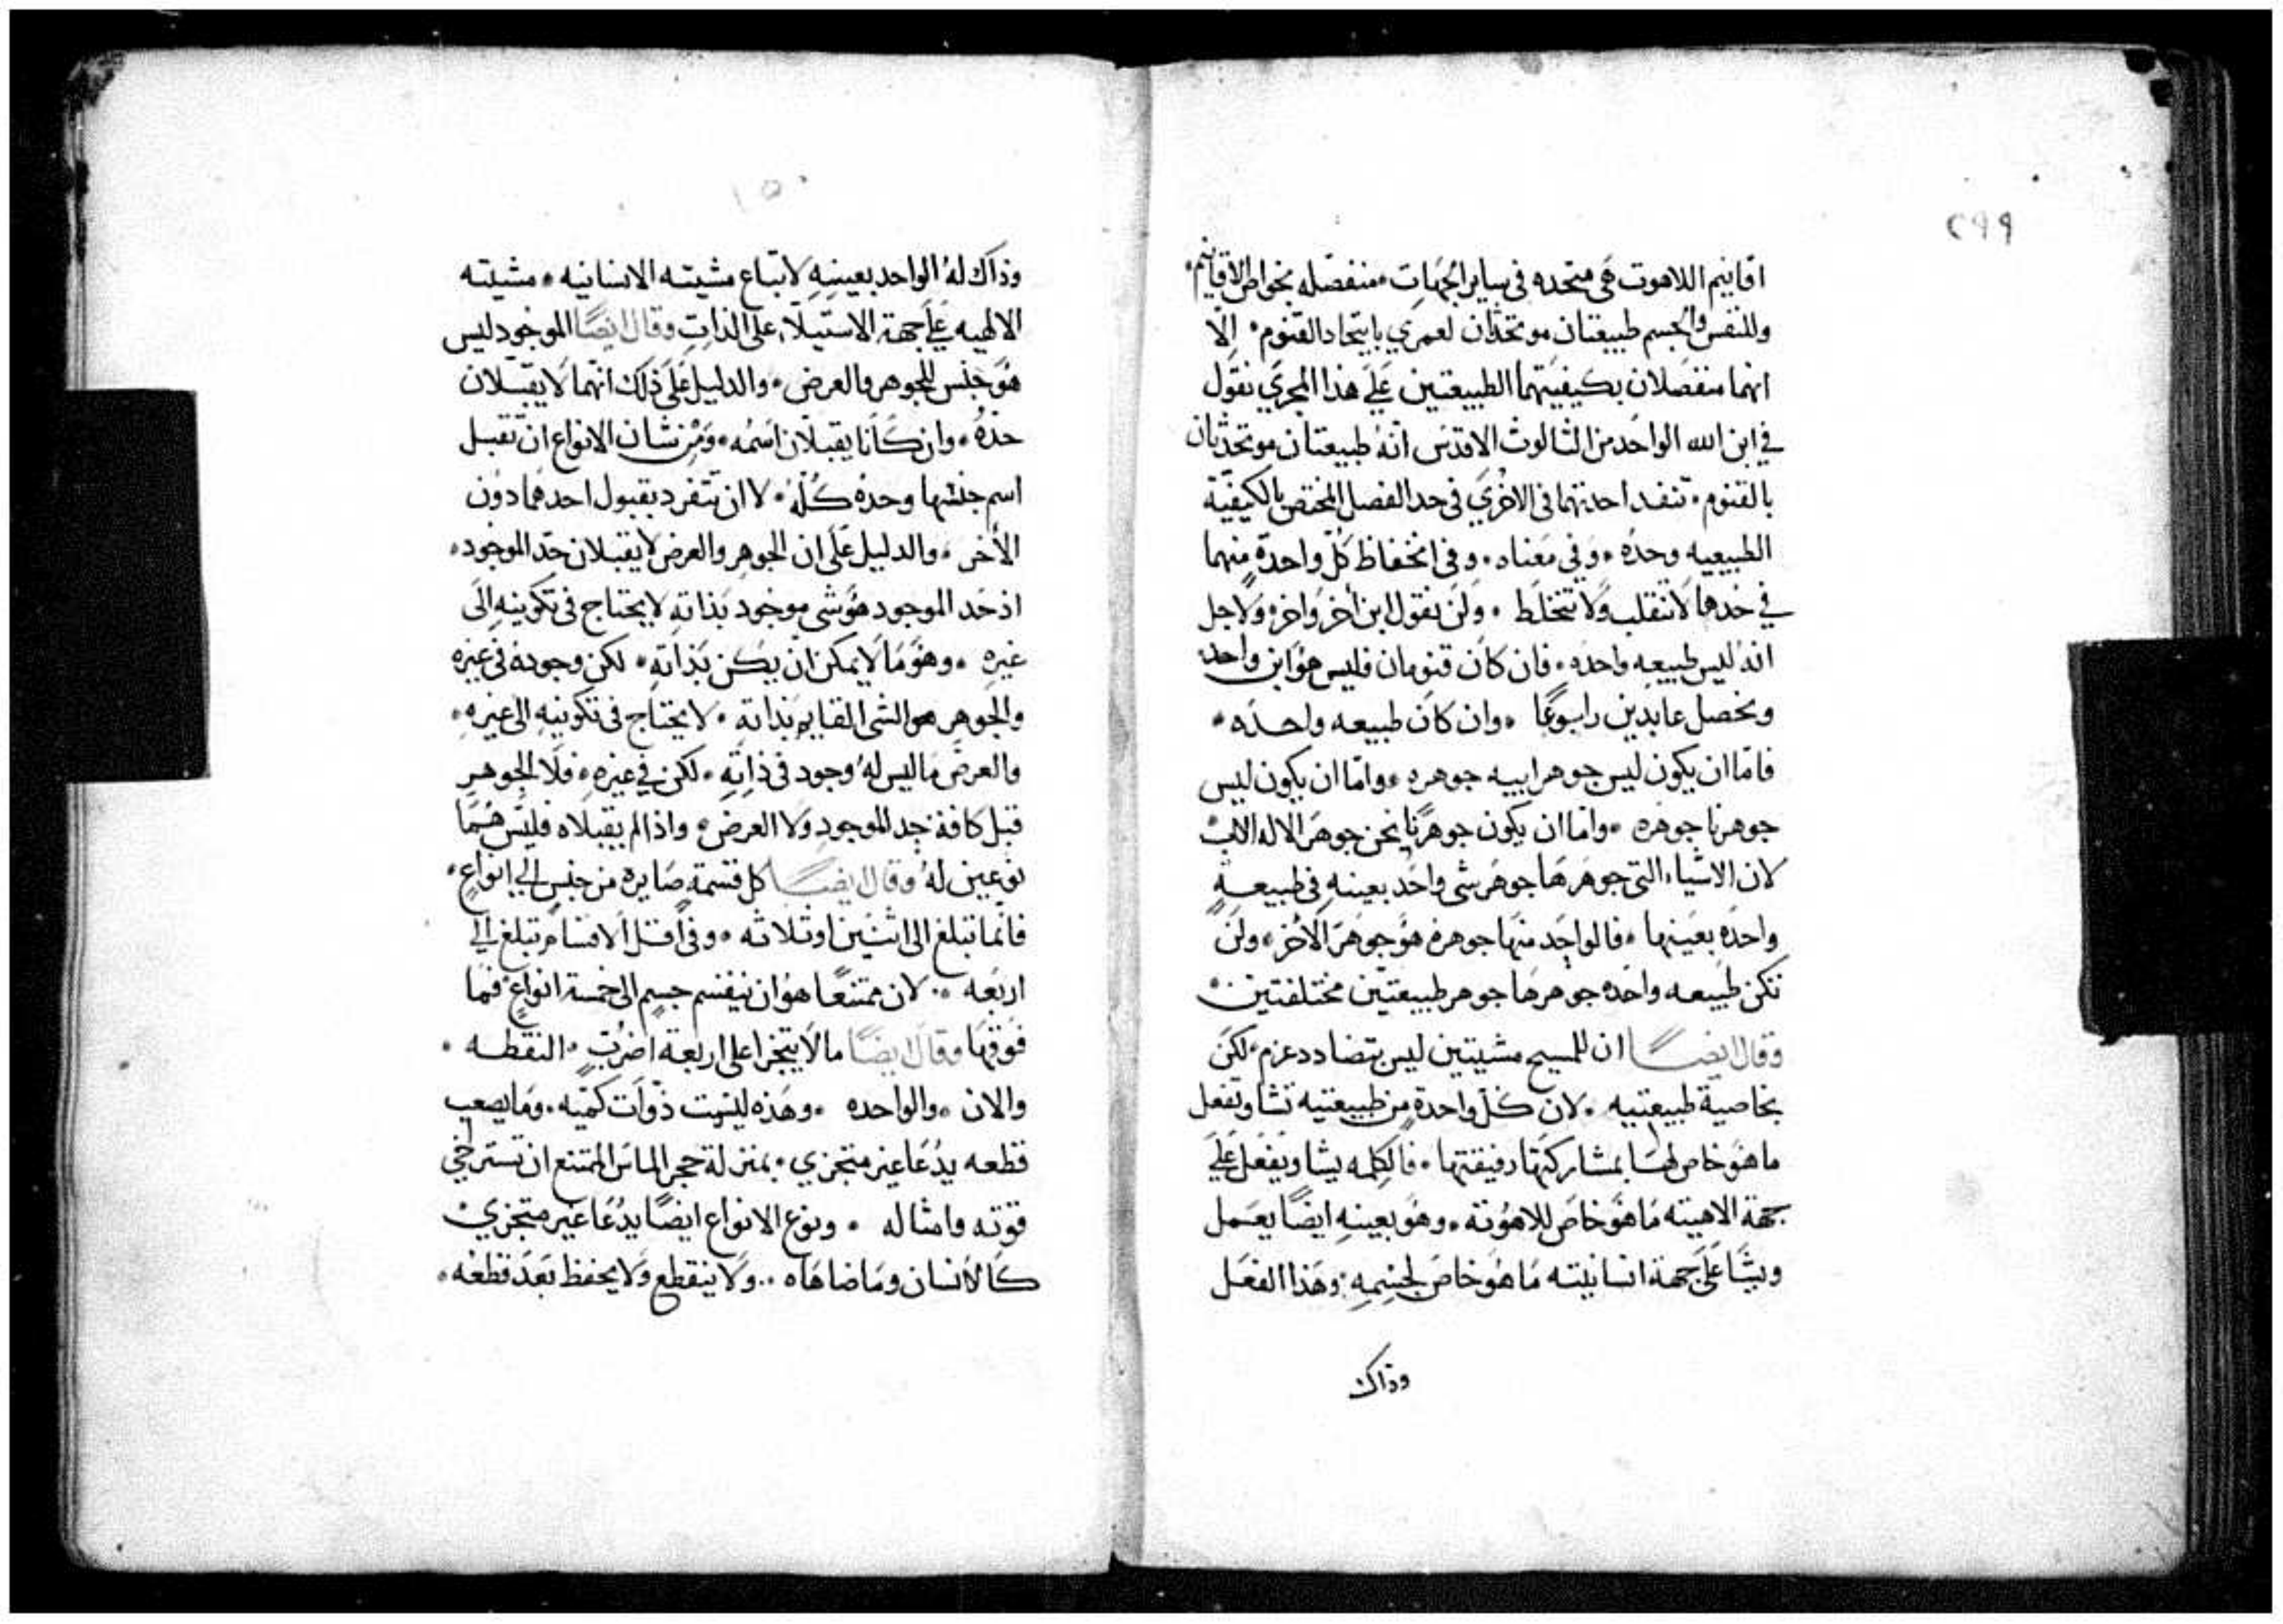 ٢٩٩
اقانيم اللاهوت هى متحده فى ساير الجهات منفصله بخواص الاقانيم،
وللنفس والجسم طبيعتان موتحدتان لعمري باتحاد القنوم، الا
انهما منفصلان بكيفيتهما الطبيعتين على هذا المجري نقول
في ابن الله الواحد من الثالوث الاقدس انه طبيعتان موتحدتان
بالقنوم، تنفد احدتهما فى الاخري فى حد الفصل المختص بالكيفية
الطبيعيه وحده، وفي معناه، وفى انحفاظ كل واحدة منهما
في حدها لا تنقلب ولا تختلط، ولن نقول ابن أخر واخر ولاجل
انه ليس طبيعه واحده، فان كان قنومان فليس هو ابن واحد
ونحصل عابدين رابوعا، وان كان طبيعه واحده،
فاما ان يكون ليس جوهر ابيه جوهره، واما ان يكون ليس
جوهرنا جوهره، واما ان يكون جوهرنا نحن جوهر الاله الاب
لان الاشياء التى جوهرها جوهر شى واحد بعينه فى طبيعةٍ
واحده بعينها، فالواحد منها جوهره هو جوهر الاخر، ولن
تكن طبيعه واحده جوهرها جوهر طبيعتين مختلفتين
وقال ايضا ان للمسيح مشيتين ليس بتضادد عزم، لكن
بخاصية طبيعتيه، لان كل واحدة من طبيعتيه تشا وتفعل
ما هو خاص لها بمشاركتها رفيقتها، فالكلمه يشا ويفعل على
جهة الاهيته ما هو خاص للاهوته، وهو بعينه ايضا يعمل
ويشا على جهة انسانيته ما هو خاص لجسمه، وهذا الفعل
وذاك
١٥٠
وذاك له الواحد بعينه لاتباع مشيته الانسانيه، مشيته
الالهيه على جهة الاستيلاء على الذات وقال ايضا الموجود ليس
هو جنس للجوهر والعرض، والدليل على ذلك انهما لا يقبلان
حده، وان كانا يقبلان اسمه، ومن شان الانواع ان تقبل
اسم جنسها وحده كله، لا ان تتفرد بقبول احدهما دون
الاخر، والدليل على ان الجوهر والعرض لا يقبلان حد الموجود،
اذ حد الموجود هو شى موجود بذاته لا يحتاج فى تكوينه الى
غيره، وهو ما لا يمكن ان يكن بذاته، لكن وجوده فى غيره
والجوهر هو الشى القايم بذاته، لا يحتاج فى تكوينه الى غيره،
والعرض ما ليس له وجود فى ذاته، لكن في غيره، فلا الجوهر
قبل كافة حد الموجود ولا العرض، واذا لم يقبلاه فليس هما
نوعين له وقال ايضا كل قسمةٍ صايره من جنسٍ الى انواعٍ،
فانما تبلغ الى اثنين او ثلاثه، وفى اقل الاقسام تبلغ الى
اربعه، لان ممتنعا هو ان ينقسم جسم الى خمسة انواعٍ فما
فوقها وقال ايضا ما لا يتجزا على اربعة اضربٍ، النقطه،
والان، والواحده، وهذه ليست ذوات كميه، وما يصعب
قطعه يدعا غير متجزي، بمنزلة حجر الماس الممتنع ان تسترخي
قوته وامثاله، ونوع الانواع ايضا يدعا غير متجزي
كالانسان وما ضاهاه، ولا ينقطع ولا يحفظ بعد قطعه،